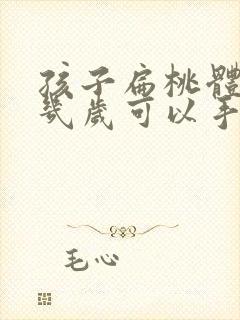 孩子扁桃體
幾歲可以手
毛心